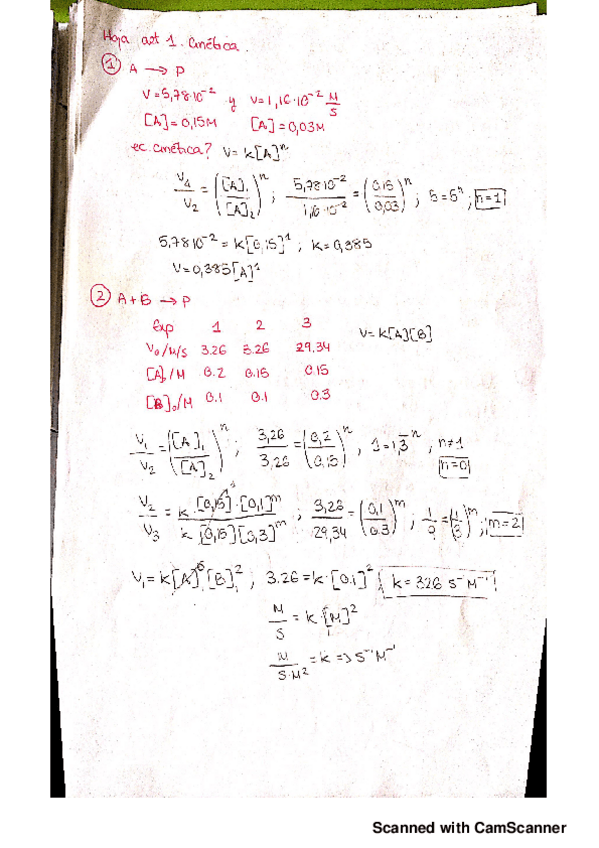 Hoja act 1. Cinética.
① A → P
V=5,78·10⁻² y V=1,16·10⁻² M/S
[A]=0,15M [A]=0,03M
ec. cinética? V=K[A]ⁿ
V₁/V₂ = ([A]₁/[A]₂)ⁿ ; 5,78·10⁻²/1,16·10⁻² = (0,15/0,03)ⁿ ; 5=5ⁿ ; n=1
5,78·10⁻² = K[0,15]¹ ; K=0,385
V=0,385[A]¹
② A+B → P
Exp 1 2 3 V=K[A][B]
V₀/M/S 3.26 3.26 29,34
[A]₀/M 0.2 0.15 0.15
[B]₀/M 0.1 0.1 0.3
V₁/V₂ = ([A]₁/[A]₂)ⁿ ; 3,26/3,26 = (0,2/0,15)ⁿ , 1=1,3ⁿ , n≠1
n=0
V₂/V₃ = K·[0,15]·[0,1]ᵐ/K[0,15][0,3]ᵐ ; 3,26/29,34 = (0,1/0.3)ᵐ ; 1/9 = (1/3)ᵐ ; m=2
V₁=K[A]⁰[B]² ; 3.26=K·[0.1]² ; K=326 S⁻¹M⁻¹
M/S = K·[M]²
M/S·M² = K => S⁻¹M⁻¹
Scanned with CamScanner